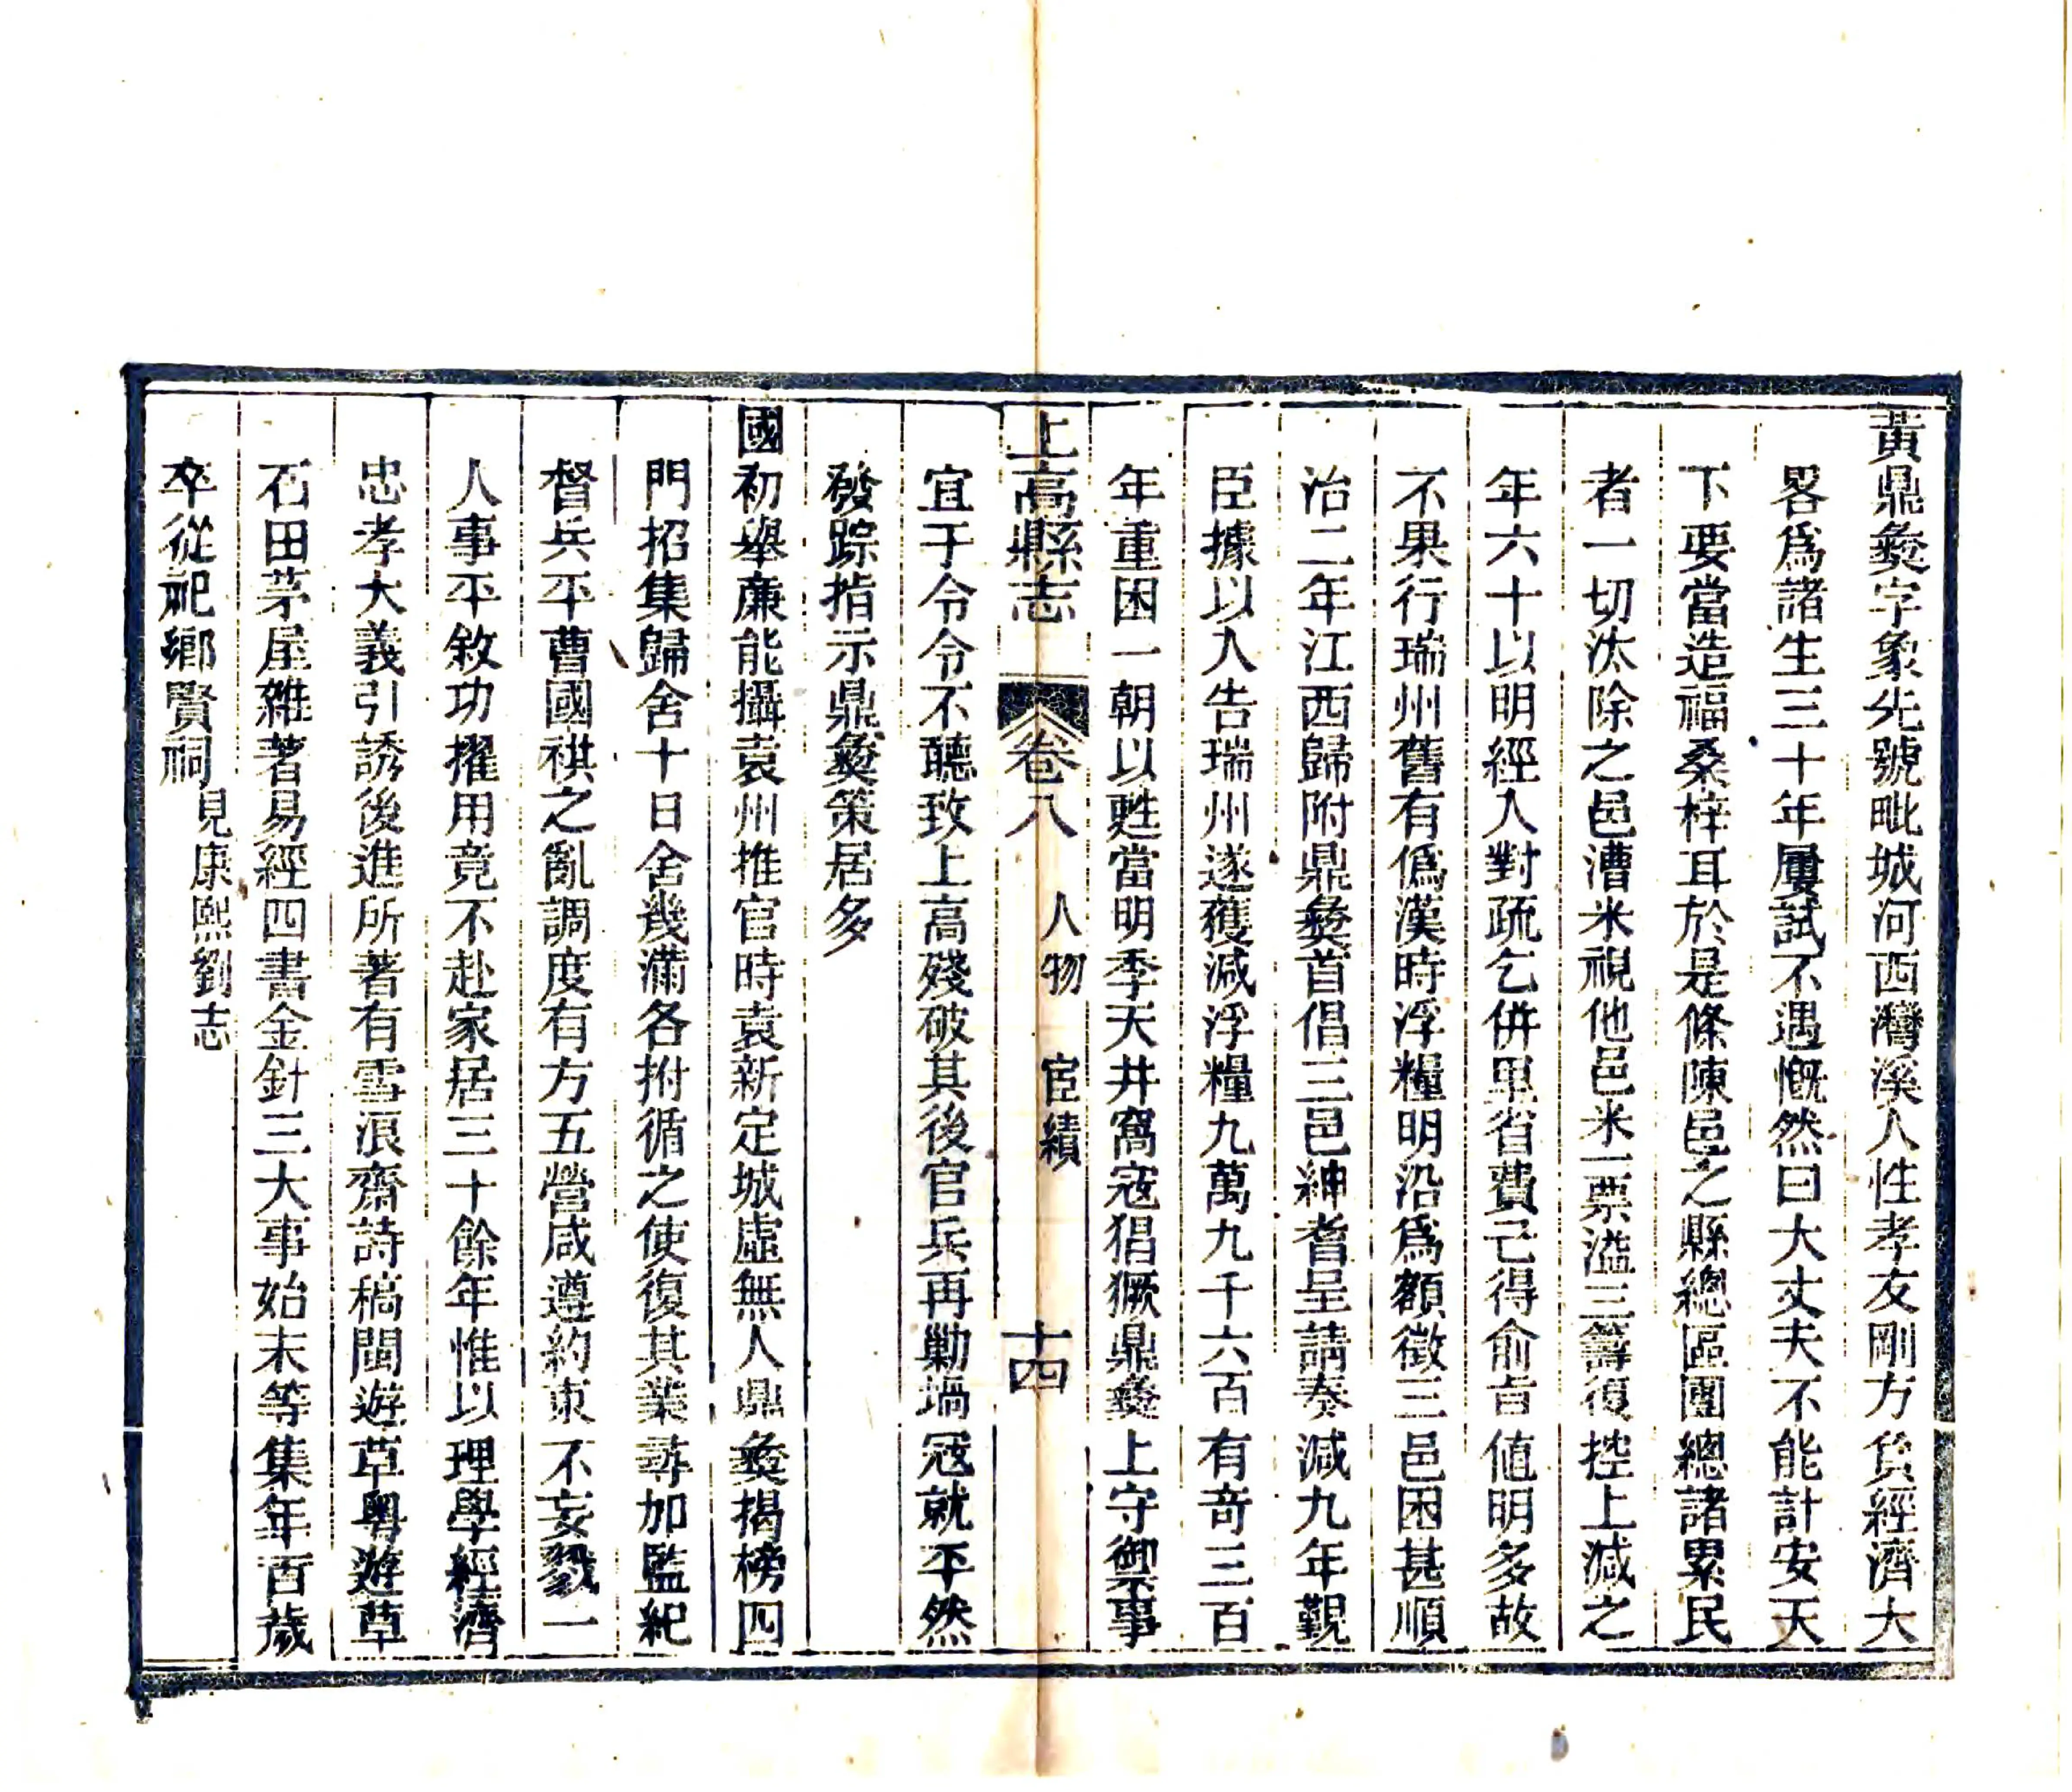 黃鼎彞字象先號毗城河西灣溪人性孝友剛方負經濟大
畧爲諸生三十年屢試不遇慨然曰大丈夫不能計安天
下要當造福桑梓耳於是條陳邑之縣總區團總諸累民
者一切汰除之邑漕米視他邑米一票溢三籌復控上減之
年六十以明經入對疏乞併里省費已得俞旨値明多故
不果行瑞州舊有僞漢時浮糧明沿爲額徵三邑困甚順
治二年江西歸附鼎彞首倡三邑紳耆呈請奏減九年覲
臣據以入告瑞州遂獲減浮糧九萬九千六百有奇三百
年重困一朝以甦當明季天井窩寇猖獗鼎彞上守禦事
宜于令令不聽致上高殘破其後官兵再勦塥寇就平然
發踪指示鼎彞策居多
上高縣志
卷八
人物
宦績
十四
國初舉廉能攝袁州推官時袁新定城虛無人鼎彞揭榜四
門招集歸舍十日舍幾滿各拊循之使復其業尋加監紀
督兵平曹國祺之亂調度有方五營咸遵約束不妄戮一
人事平敘功擢用竟不赴家居三十餘年惟以理學經濟
忠孝大義引誘後進所著有雪浪齋詩稿閩遊草粵遊草
石田茅屋雜著易經四書金針三大事始末等集年百歲
卒從祀鄉賢祠見康熙劉志